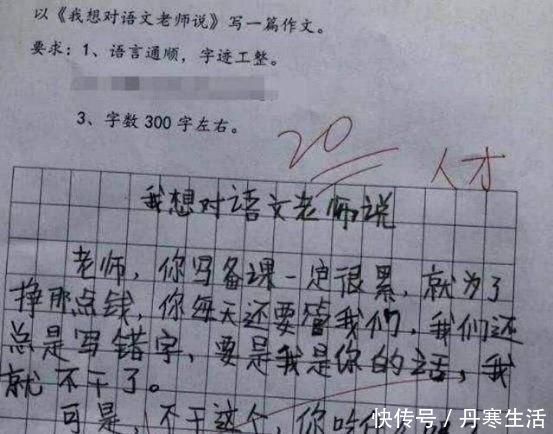 以《我想对语文老师说》写一篇作文。
要求：1、语言通顺，字迹工整。
3、字数 300 字左右。
20
人才
我想对语文老师说
老师，你写备课一定很累，就为了
挣那点钱，你每天还要管我们，我们还
总是写错字，要是我是你的话，我
就不干了。
可是，不干这个，你啥
快传号／丹寒生活